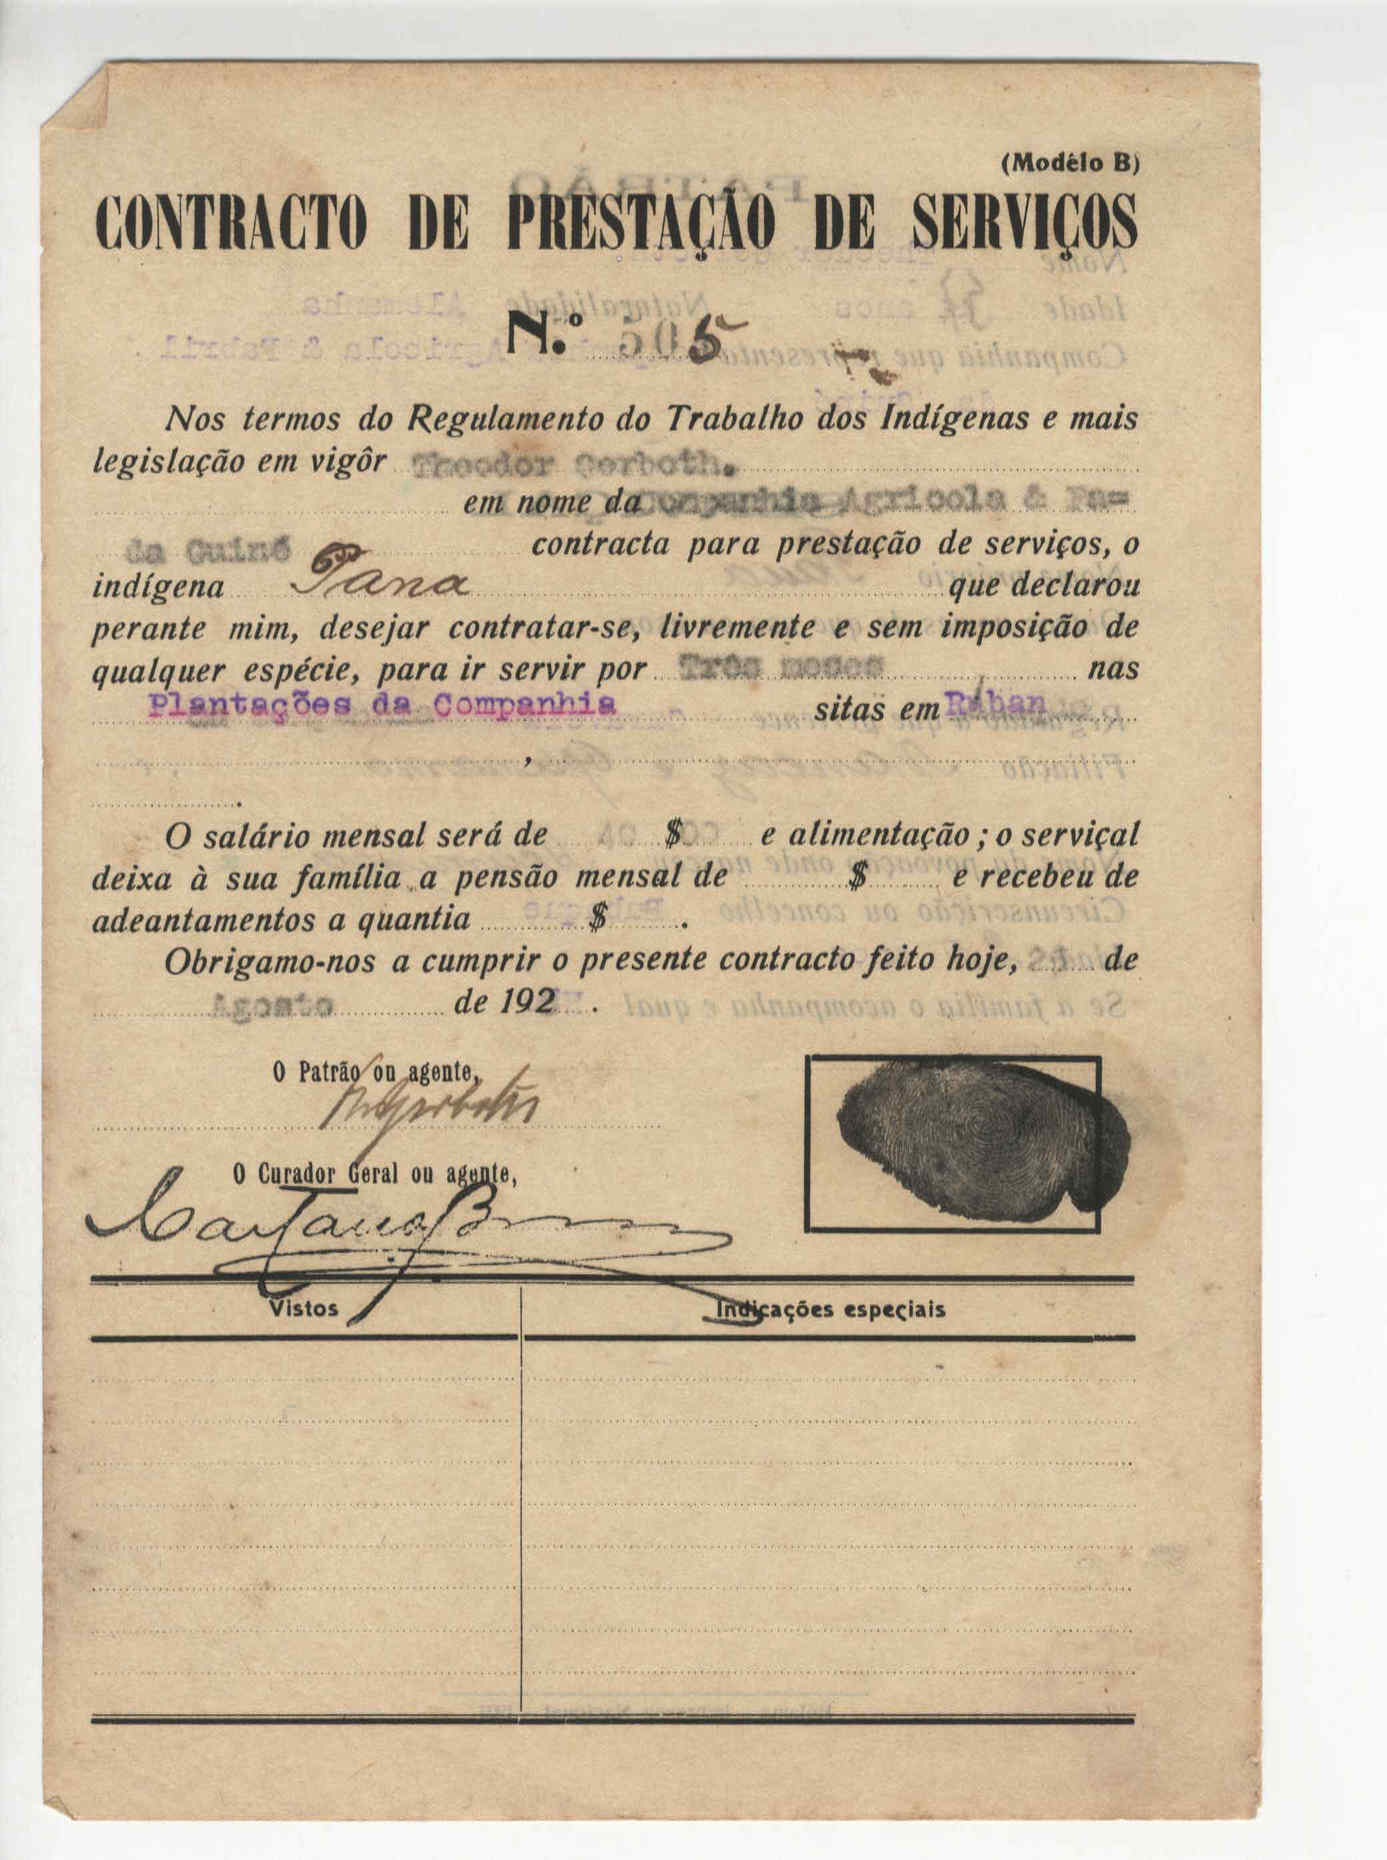 (Modêlo B)
CONTRACTO DE PRESTAÇÃO DE SERVIÇOS
N.º 505
Nos termos do Regulamento do Trabalho dos Indígenas e mais
legislação em vigôr Theodor Gerboth.
em nome da Companhia Agricola & Fa=
da Guiné contracta para prestação de serviços, o
indígena Pana que declarou
perante mim, desejar contratar-se, livremente e sem imposição de
qualquer espécie, para ir servir por Três meses nas
Plantações da Companhia sitas em Rúban
,
.
O salário mensal será de $ e alimentação ; o serviçal
deixa à sua família a pensão mensal de $ e recebeu de
adeantamentos a quantia $ .
Obrigamo-nos a cumprir o presente contracto feito hoje, de
Agosto de 192 .
O Patrão ou agente,
O Curador Geral ou agente,
Vistos Indicações especiais